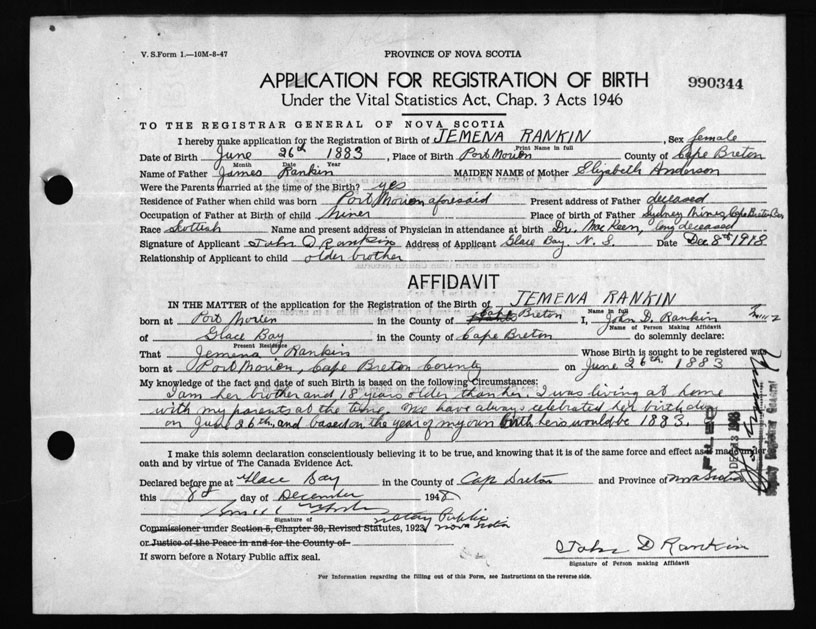 V. S. Form 1.—10M-8-47
PROVINCE OF NOVA SCOTIA
APPLICATION FOR REGISTRATION OF BIRTH
990344
Under the Vital Statistics Act, Chap. 3 Acts 1946
TO THE REGISTRAR GENERAL OF NOVA SCOTIA
I hereby make application for the Registration of Birth of JEMENA RANKIN, Sex female
Print Name in full
Date of Birth June 26th 1883, Place of Birth Port Morien County of Cape Breton
Month Date Year
Name of Father James Rankin MAIDEN NAME of Mother Elizabeth Anderson
Were the Parents married at the time of the Birth? yes
Residence of Father when child was born Port Morien aforesaid Present address of Father deceased
Occupation of Father at Birth of child miner Place of birth of Father Sydney Mines, Cape Breton Co.
Race Scottish Name and present address of Physician in attendance at birth Dr. McKeen, long deceased
Signature of Applicant John D Rankin Address of Applicant Glace Bay, N. S. Date Dec 8th 1948
Relationship of Applicant to child older brother
AFFIDAVIT
IN THE MATTER of the application for the Registration of the Birth of JEMENA RANKIN
Name in full
born at Port Morien in the County of Cape Breton I, John D. Rankin
Name of Person Making Affidavit
of Glace Bay in the County of Cape Breton do solemnly declare:
Present Residence
That Jemena Rankin Whose Birth is sought to be registered was
born at Port Morien, Cape Breton County on June 26th 1883
My knowledge of the fact and date of such Birth is based on the following Circumstances:
I am her brother and 18 years older than her. I was living at home
with my parents at the time. We have always celebrated her birthday
on June 26th, and based on the year of my own birth hers would be 1883.
FILED
DEC 13 1948
Deputy Registrar General
I make this solemn declaration conscientiously believing it to be true, and knowing that it is of the same force and effect as made under
oath and by virtue of The Canada Evidence Act.
Declared before me at Glace Bay in the County of Cap Breton and Province of Nova Scotia
this 8th day of December 1948
Signature of
Notary Public
Commissioner under Section 5, Chapter 38, Revised Statutes, 1923, Nova Scotia
or Justice of the Peace in and for the County of
John D Rankin
If sworn before a Notary Public affix seal.
Signature of Person making Affidavit
For Information regarding the filling out of this Form, see Instructions on the reverse side.